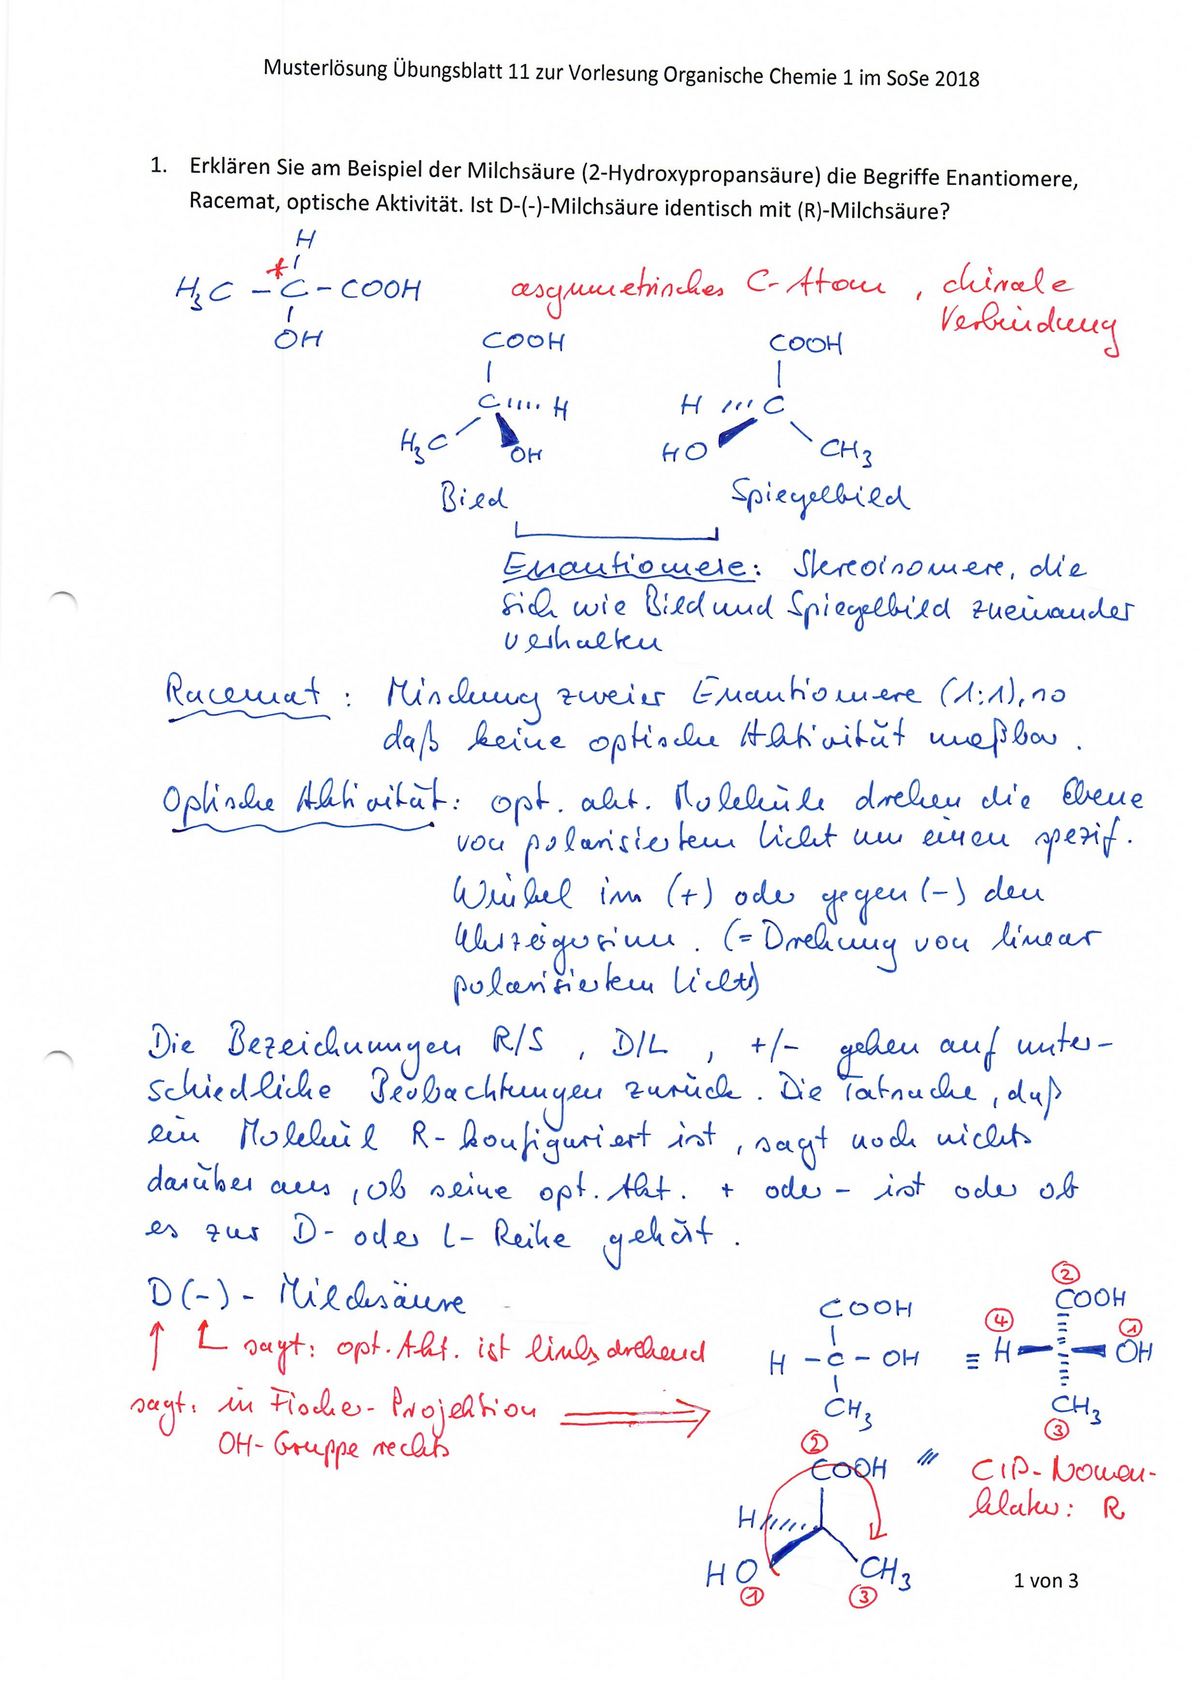 Musterlösung Übungsblatt 11 zur Vorlesung Organische Chemie 1 im SoSe 2018
1. Erklären Sie am Beispiel der Milchsäure (2-Hydroxypropansäure) die Begriffe Enantiomere,
Racemat, optische Aktivität. Ist D-(-)-Milchsäure identisch mit (R)-Milchsäure?
H
*
H₃C - C - COOH
OH
asymmetrisches C-Atom, chirale
Verbindung
COOH COOH
C H H C
H₃C OH HO CH₃
Bild Spiegelbild
Enantiomere: Stereoisomere, die
sich wie Bild und Spiegelbild zueinander
verhalten
Racemat: Mischung zweier Enantiomere (1:1), so
daß keine optische Aktivität meßbar.
Optische Aktivität: opt. akt. Moleküle drehen die Ebene
von polarisiertem Licht um einen spezif.
Winkel im (+) oder gegen (-) den
Uhrzeigersinn. (= Drehung von linear
polarisiertem Licht)
Die Bezeichnungen R/S, D/L, +/- gehen auf unter-
schiedliche Beobachtungen zurück. Die Tatsache, daß
ein Molekül R-konfiguriert ist, sagt noch nichts
darüber aus, ob seine opt. Akt. + oder - ist oder ob
es zur D- oder L-Reihe gehört.
D(-)-Milchsäure
sagt: opt. Akt. ist linksdrehend
sagt: in Fischer-Projektion
OH-Gruppe rechts
COOH
H - C - OH
CH₃
≡
② COOH
④ H ① OH
CH₃ ③
② COOH
H
HO ① CH₃ ③
CIP-Nomen-
klatur: R
1 von 3